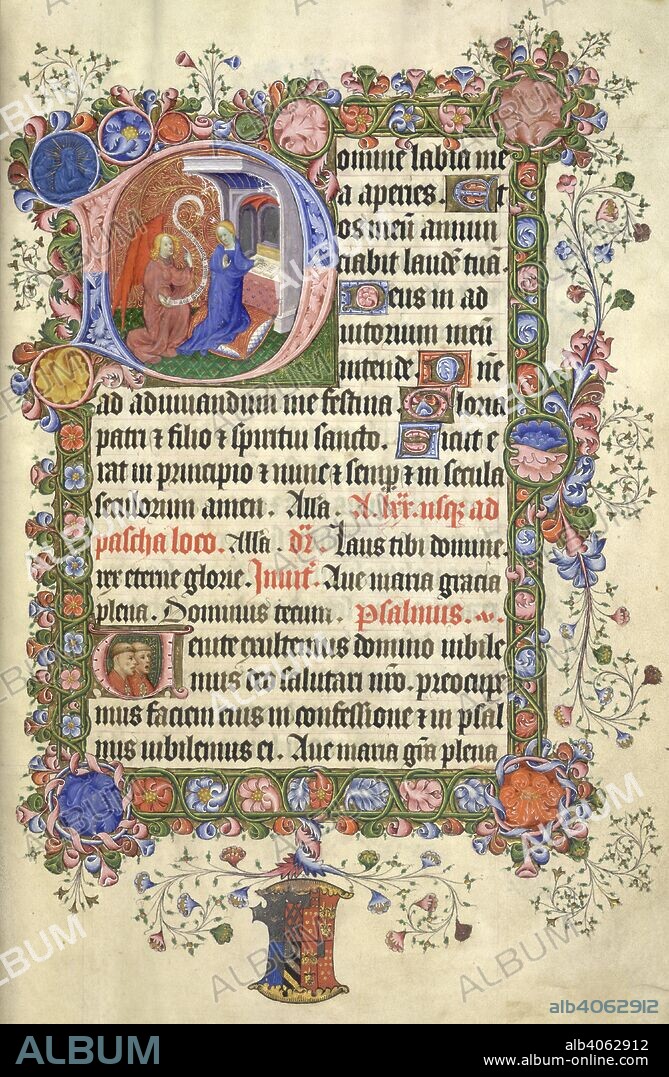 omine labia me
a aperies. Et
os meū annun
ciabit laudē tuā.
Deus in ad
iutorium meū
intende. Dn̄e
ad adiuuandum me festina Gloria
patri ⁊ filio ⁊ spiritui sancto. Sicut e
rat in principio ⁊ nunc ⁊ semp ⁊ in secula
seculorum amen. Alla. A lxx. usqȝ ad
pascha loco. Alla. dr̄ Laus tibi domine.
rex eterne glorie. Inuit̄. Aue maria gracia
plena. Dominus tecum. psalmus.
Uenite exultemus domino iubile
mus deo salutari nr̄o. preocupe
mus faciem eius in confessione ⁊ in psal
mis iubilemus ei. Aue maria gr̄a plena
alb4062912
ALBUM
alb4062912
www.album-online.com